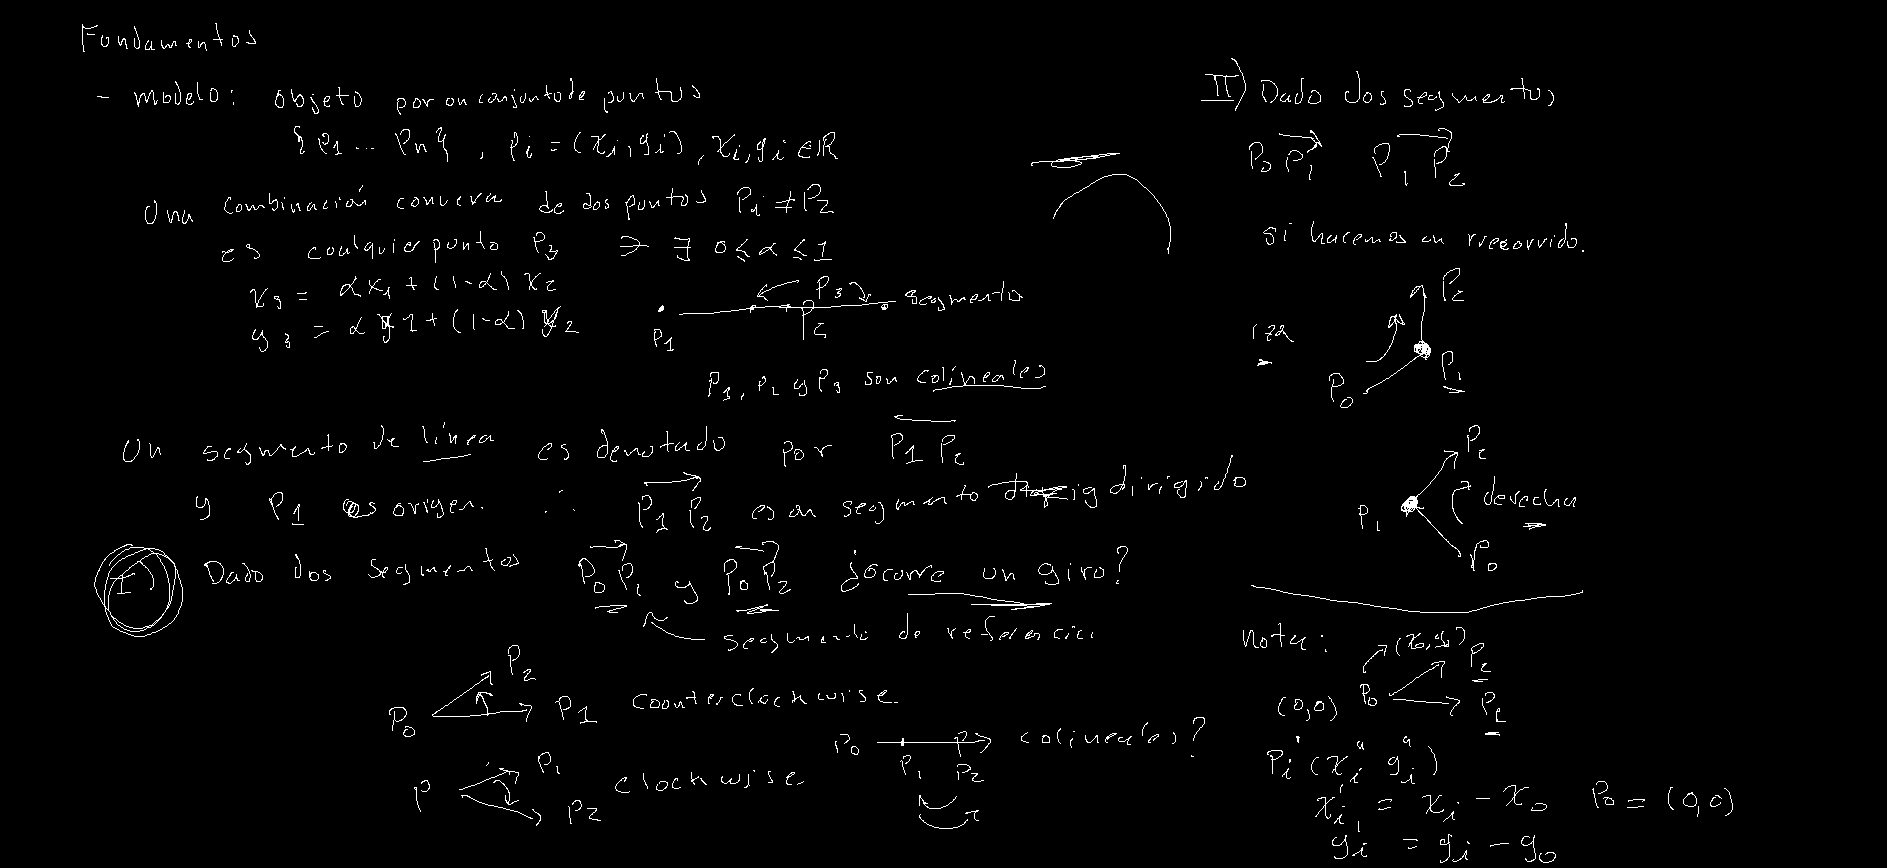 Fundamentos
- modelo: objeto por un conjunto de puntos
{P1 ... Pn}, Pi = (xi, yi), xi, yi ∈ R
Una combinación convexa de dos puntos P1 ≠ P2
es cualquier punto P3 ∋ ∃ 0 ≤ α ≤ 1
x3 = αx1 + (1-α) x2
y3 = α y1 + (1-α) y2
P1 P3 P2 segmento
P1, P2 y P3 son colineales
Un segmento de línea es denotado por P1 P2
y P1 es origen. ∴ P1 P2 es un segmento dirigido
I) Dado dos segmentos P0 P1 y P0 P2 ¿ocurre un giro?
segmento de referencia
P0 P2 P1 counterclockwise
P P1 P2 clockwise
P0 P1 P2 colineales?
II) Dado dos segmentos
P0 P1 P1 P2
si hacemos un rrecorrido.
izq P0 P1 P2
P1 P2 P0 derecha
nota: (x0, y0)
(0,0) P0 P2 P1
Pi' (xi' yi')
xi' = xi - x0 P0 = (0,0)
yi' = yi - y0